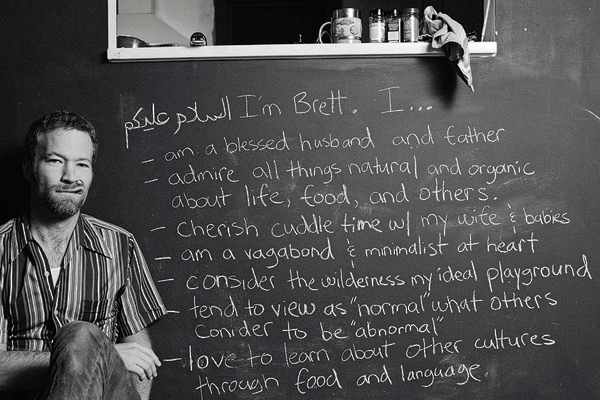 السلام عليكم I'm Brett. I...
- am a blessed husband and father
- admire all things natural and organic
about life, food, and others.
- cherish cuddle time w/ my wife & babies
- am a vagabond & minimalist at heart
- consider the wilderness my ideal playground
- tend to view as "normal" what others
conider to be "abnormal"
- love to learn about other cultures
through food and language.